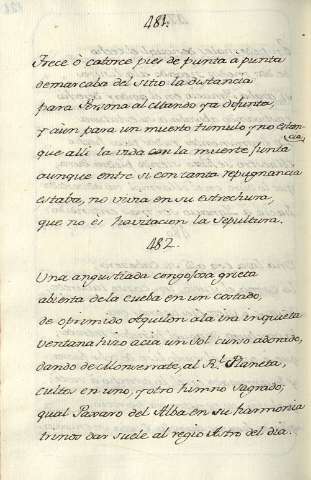 481.
Trece ò catorce pies de punta a punta
demarcaba del sitio la distancia
para Persona al citando ya difunta,
y aùn para un muerto tumulo y no estancia,
que alli la vida con la muerte junta
aunque entre si con tanta repugnancia
estaba, no vivia en su estrechura,
que no es havitacion la Sepultura.
482.
Una angustiada congojosa grieta
abierta de la cueba en un costado,
de oprimido Aquilon a la ira inquieta
ventana hizo acia un Sol curso adorado,
dando de Monserrate, al Rl. Planeta,
cultos en uno, y otro himno sagrado;
qual Paxaro del Alba en su harmonia
trinos dar suele al regio Astro del dia.